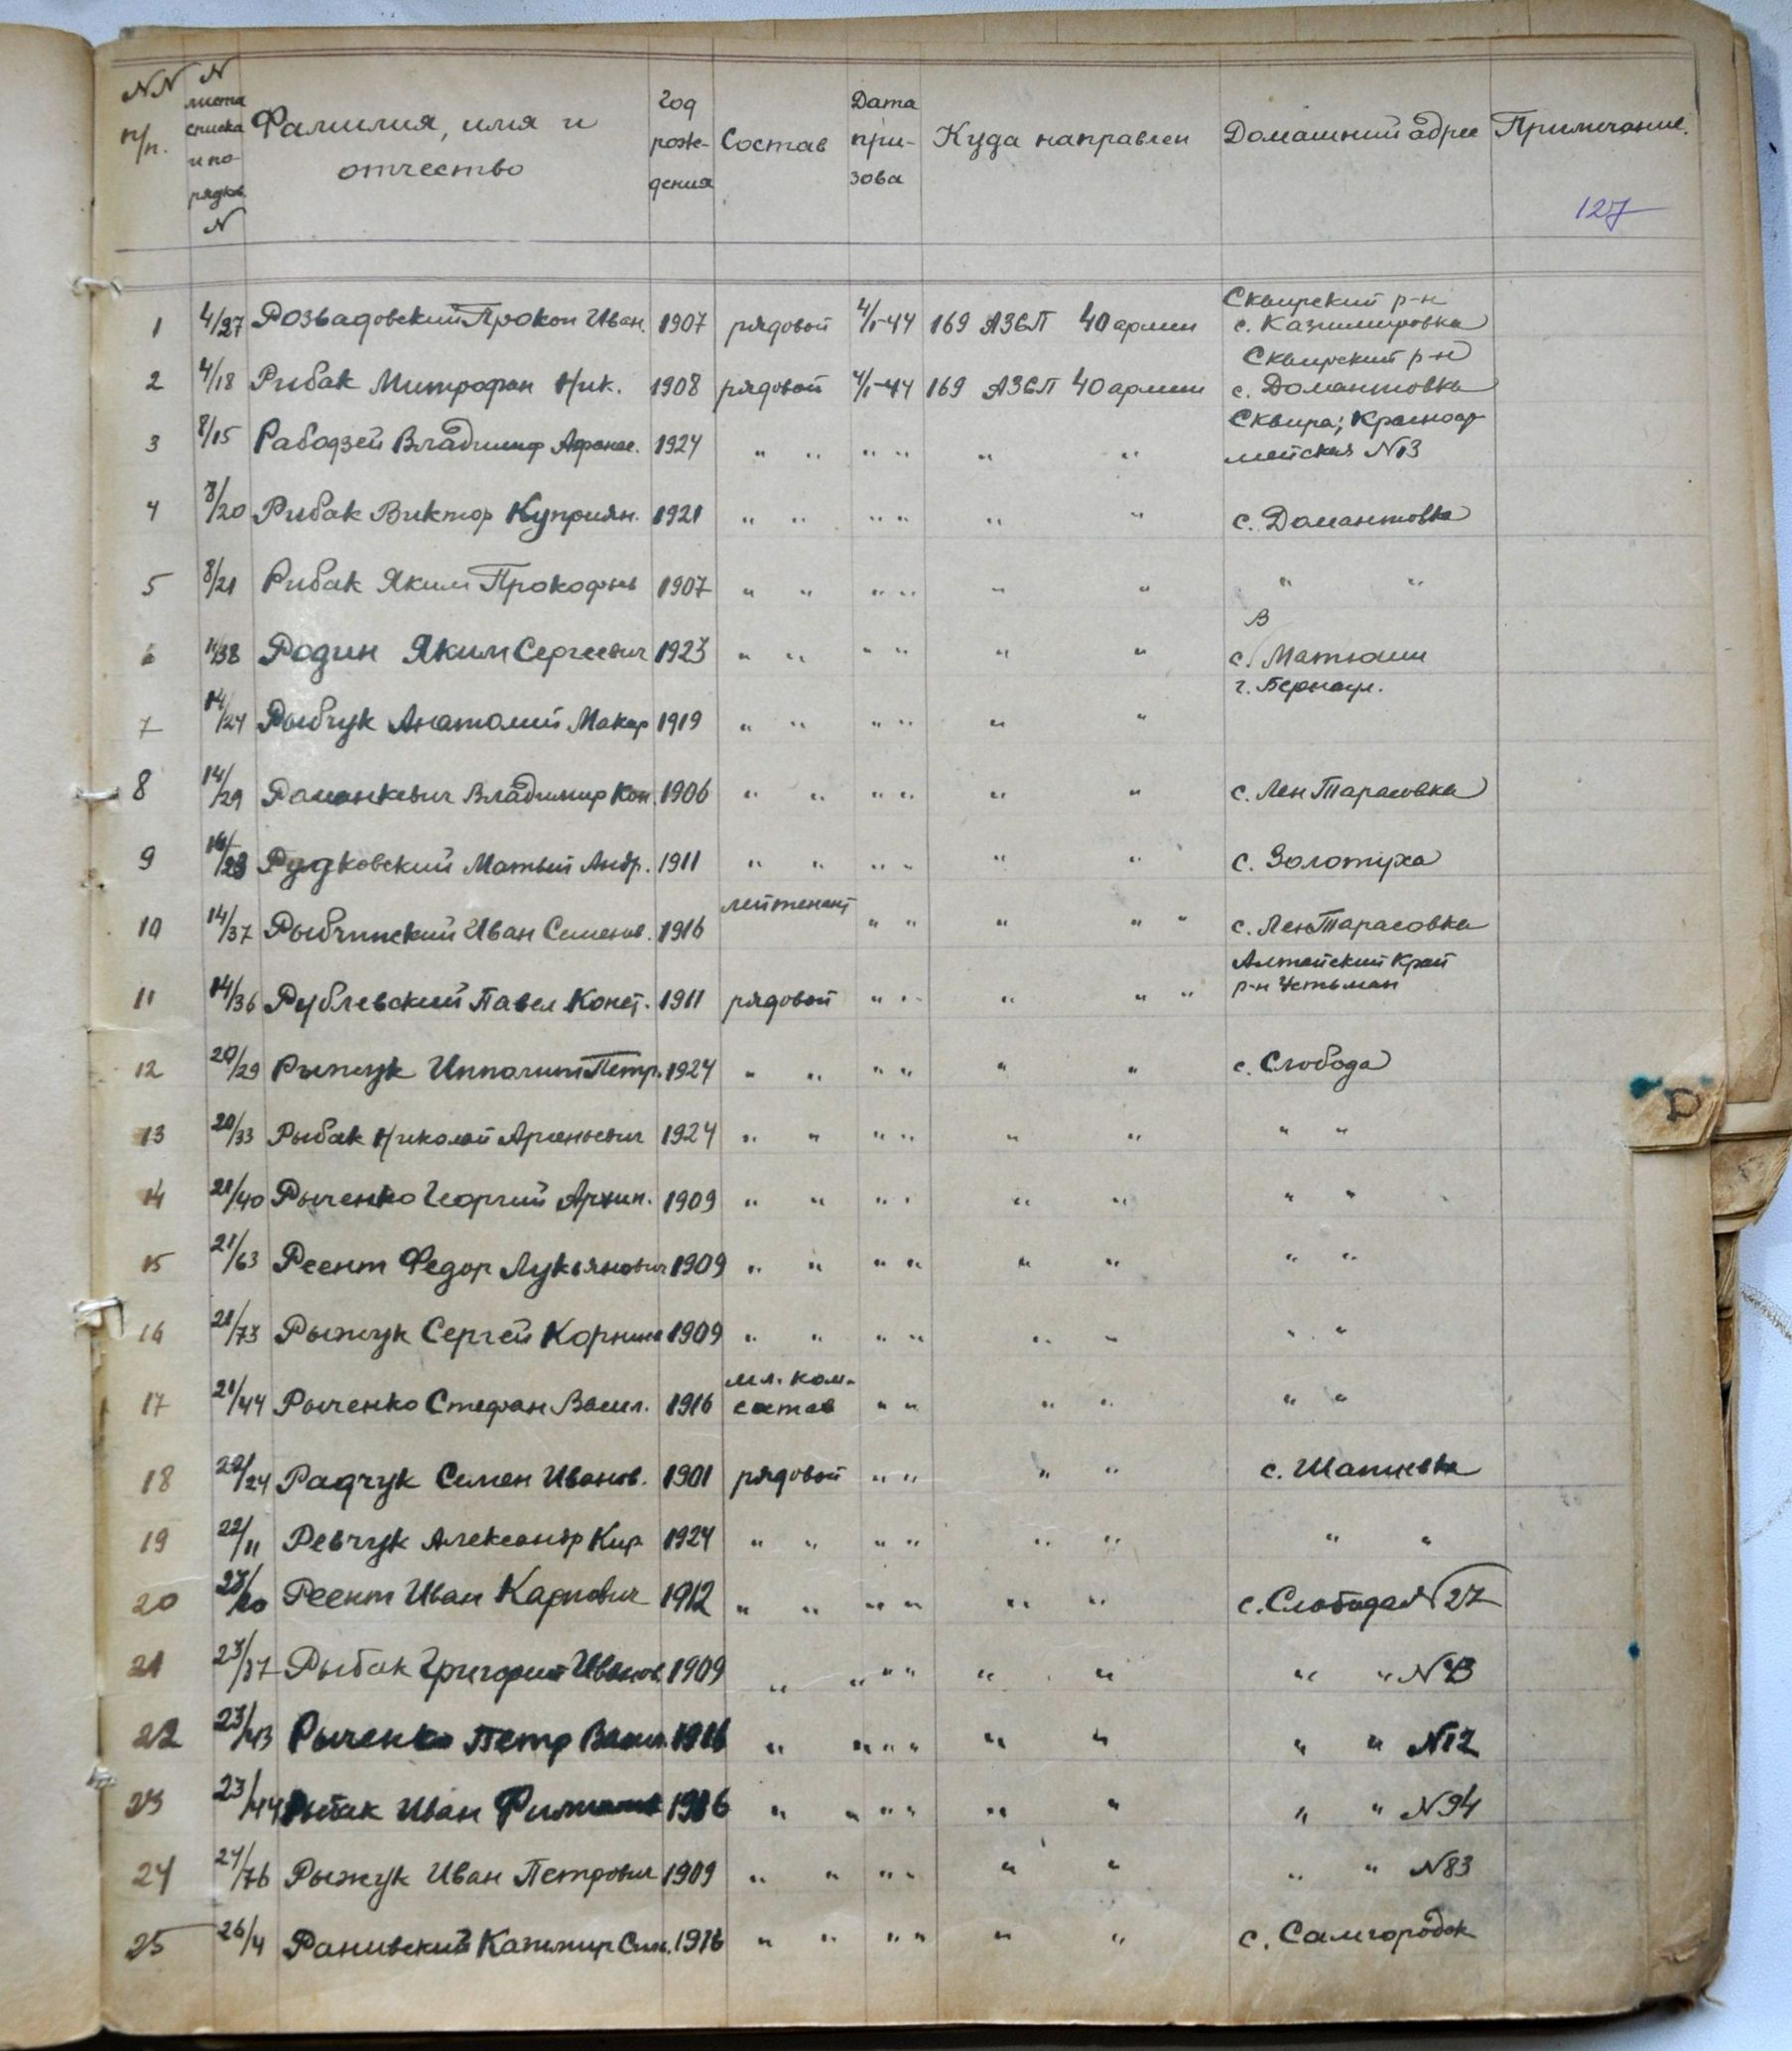 NN п/п. N листа списка и по- рядков N Фамилия, имя и отчество Год рож- дения Состав Дата при- зова Куда направлен Домашний адрес Примечание.
127
Сквирский р-н
1 4/27 Розвадовский Прокоп Иван. 1907 рядовой 4/I-44 169 АЗСП 40 армии с. Казимировка
Сквирский р-н
2 4/18 Рибак Митрофан Ник. 1908 рядовой 4/I-44 169 АЗСП 40 армии с. Домантовка
Сквира; Красноар-
3 8/15 Рабодзей Владимир Афанас. 1924 " " " " " " мейская N13
4 8/20 Рибак Виктор Куприян. 1921 " " " " " " с. Домантовка
5 8/21 Рибак Яким Прокофьев 1907 " " " " " " " "
В
6 11/38 Родин Яким Сергеевич 1923 " " " " " " с. Матюши
г. Бернаул.
7 14/24 Рыбчук Анатолий Макар 1919 " " " " " "
8 14/29 Романкевич Владимир Кон. 1906 " " " " " " с. Лен Тарасовка
9 14/23 Рудковский Матвий Андр. 1911 " " " " " " с. Золотуха
лейтенант
10 14/37 Рыбчинский Иван Семенов. 1916 " " " " " с. Лен Тарасовка
Алтайский Край
11 14/36 Рублевский Павел Конст. 1911 рядовой " " " " " р-н Устьман
12 20/29 Рыжук Ипполит Петр. 1924 " " " " " " с. Слобода
13 20/33 Рыбак Николай Арсеньевич 1924 " " " " " " " "
14 21/40 Рыченко Георгий Архип. 1909 " " " " " " " "
15 21/63 Реент Федор Лукьянович 1909 " " " " " " " "
16 21/73 Рыжук Сергей 1909 " " " " " " " "
мл. ком-
17 21/44 Рыченко Стефан Васил. 1916 состав " " " " " "
18 22/24 Радчук Семен Иванов. 1901 рядовой " " " " с. Шапиевка
19 22/11 Ревчук Александр Кир. 1924 " " " " " " " "
20 Реент Иван Карпович 1912 " " " " " " с. Слобода N27
21 23/37 Рыбак Григорий Иванов. 1909 " " " " " " " " N43
22 23/43 Рыченко Петр Васил. 1916 " " " " " " " " N12
23 23/44 Рыбак Иван 1906 " " " " " " " " N94
24 24/76 Рыжук Иван Петрович 1909 " " " " " " " " N83
25 26/4 Раннвский Казимир Сим. 1916 " " " " " " с. Самгородок
Р